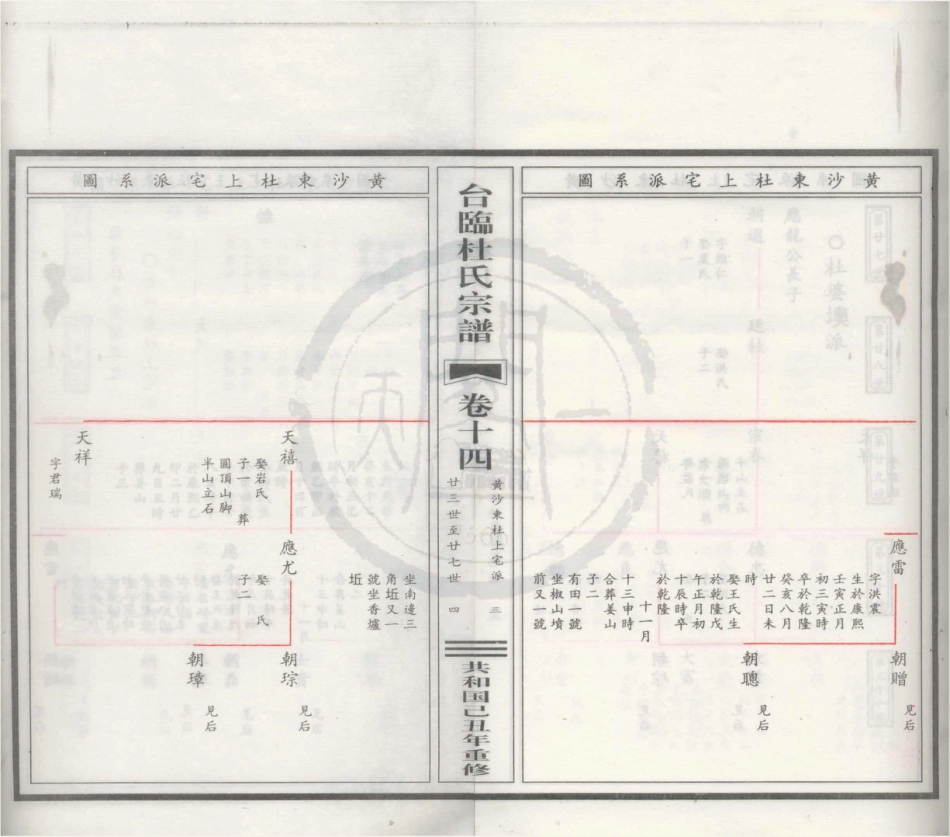 黃沙東杜上宅派系圖
應雷
字洪震
生於康熙
壬寅正月
初三寅時
卒於乾隆
癸亥八月
廿二日未
時
娶王氏生
於乾隆戊
午正月初
十辰時卒
於乾隆
十一月
十三申時
合葬姜山
子二
有田一號
坐椒山墳
前又一號
朝贈
見后
朝聰
見后
台臨杜氏宗譜
卷十四
黃沙東杜上宅派
三
廿三世至廿七世
四
共和国己丑年重修
黃沙東杜上宅派系圖
坐南邊三
角坵又一
號坐香爐
坵
天禧
娶岩氏
子一 葬
圓頂山腳
半山立石
應尤
娶 氏
子二
朝琮
見后
朝璋
見后
天祥
字君瑞